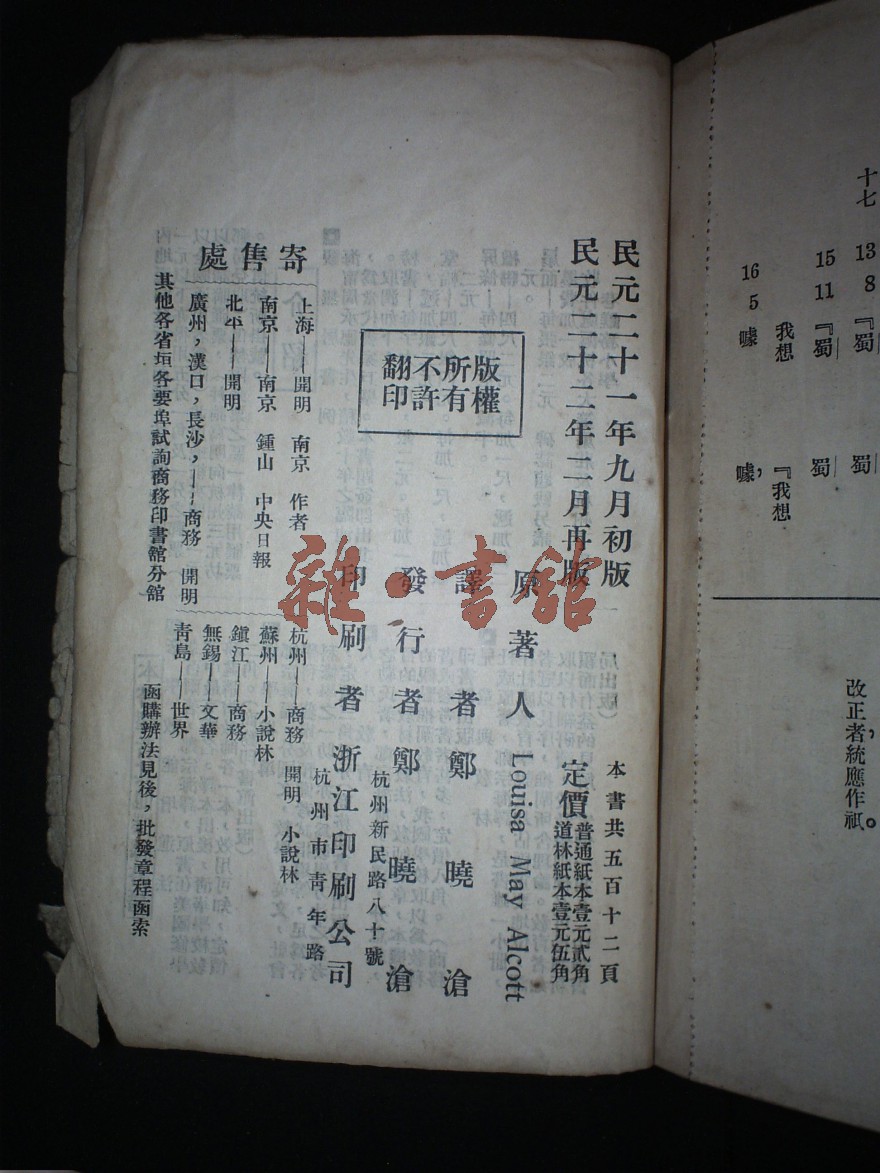 十七 13 8 『蜀 蜀
15 11 『蜀 蜀
我想 『我想
16 5 噓 噓，
改正者統應作祇。
民元二十一年九月初版
民元二十二年二月再版
本書共五百十二頁
定價
普通紙本壹元貳角
道林紙本壹元伍角
版權所有
不許翻印
原著人 Louisa May Alcott
譯者 鄭曉滄
發行者 鄭曉滄
杭州新民路八十號
印刷者 浙江印刷公司
杭州市青年路
寄售處
上海——開明 南京 作者
南京——南京 鍾山 中央日報
北平——開明
廣州，漢口，長沙，——商務 開明
其他各省垣各要埠試詢商務印書館分館
杭州——商務 開明 小說林
蘇州——小說林
鎮江——商務
無錫——文華
青島——世界
函購辦法見後，批發章程函索
雜·書館